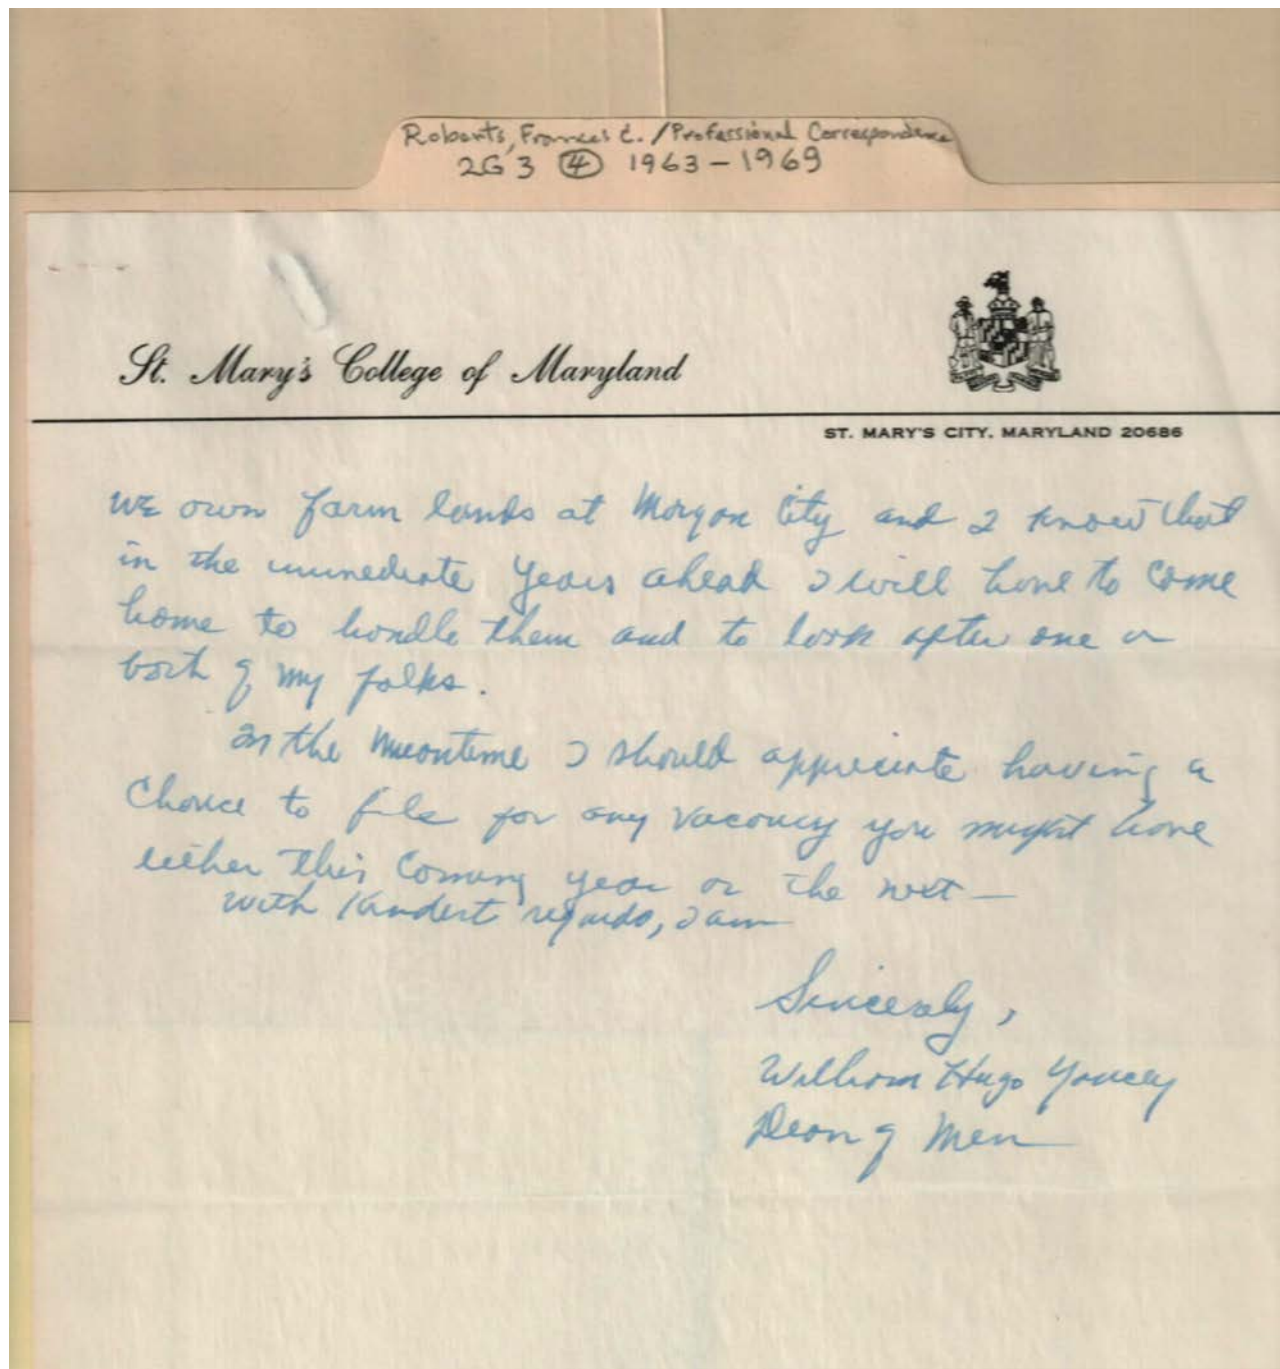 Roberts, Frances C. / Professional Correspondence
2G 3 4 1963-1969
St. Mary's College of Maryland
ST. MARY'S CITY, MARYLAND 20686
We own farm lands at Morgan City and I know that
in the immediate years ahead I will have to come
home to handle them and to look after one or
both of my folks.
In the meantime I should appreciate having a
chance to file for any vacancy you might have
either this coming year or the next —
with kindest regards, I am
Sincerely,
William Hugo Yancey
Dean of Men